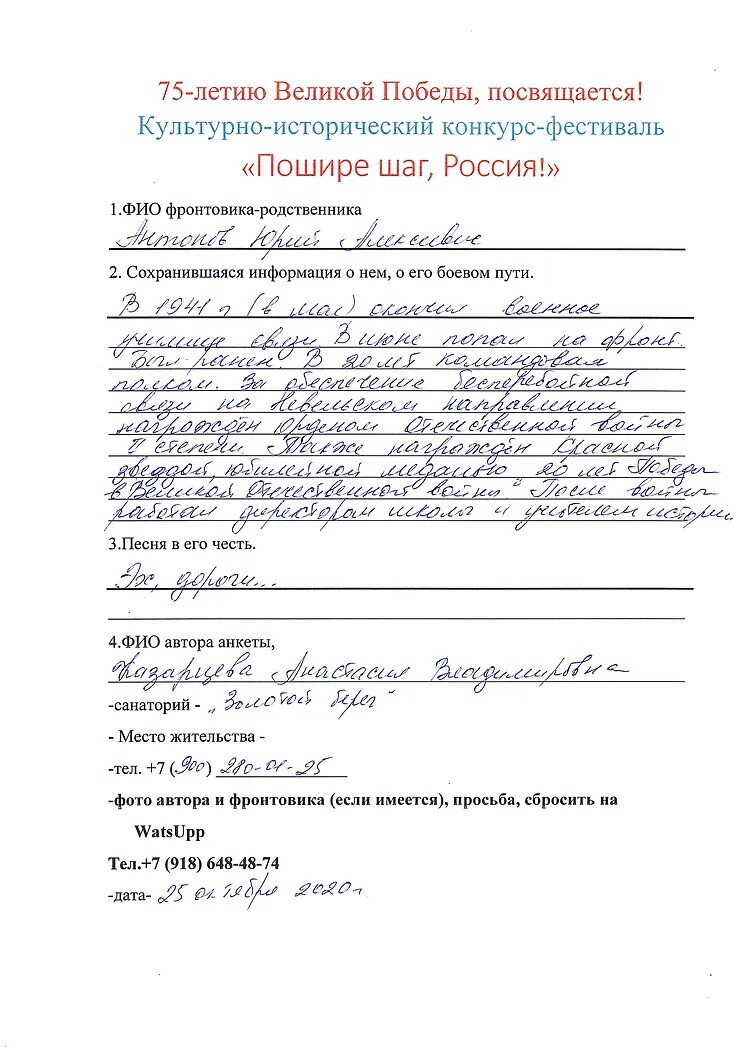 75-летию Великой Победы, посвящается!
Культурно-исторический конкурс-фестиваль
«Пошире шаг, Россия!»
1.ФИО фронтовика-родственника
Антонов Юрий Алексеевич
2. Сохранившаяся информация о нем, о его боевом пути.
В 1941 г (в мае) окончил военное
училище связи. В июне попал на фронт.
Был ранен. В 20 лет командовал
полком. За обеспечение бесперебойной
связи на Невельском направлении
награждён Орденом Отечественной войны
II степени. Также награждён Красной
звездой, юбилейной медалью "20 лет Победы
в Великой Отечественной войне". После войны
работал директором школы и учителем истории.
3.Песня в его честь.
Эх, дороги...
4.ФИО автора анкеты,
Казарцева Анастасия Владимировна
-санаторий - „Золотой берег"
- Место жительства -
-тел. +7 (900) 280-01-25
-фото автора и фронтовика (если имеется), просьба, сбросить на
WatsUpp
Тел.+7 (918) 648-48-74
-дата- 25 октября 2020 г